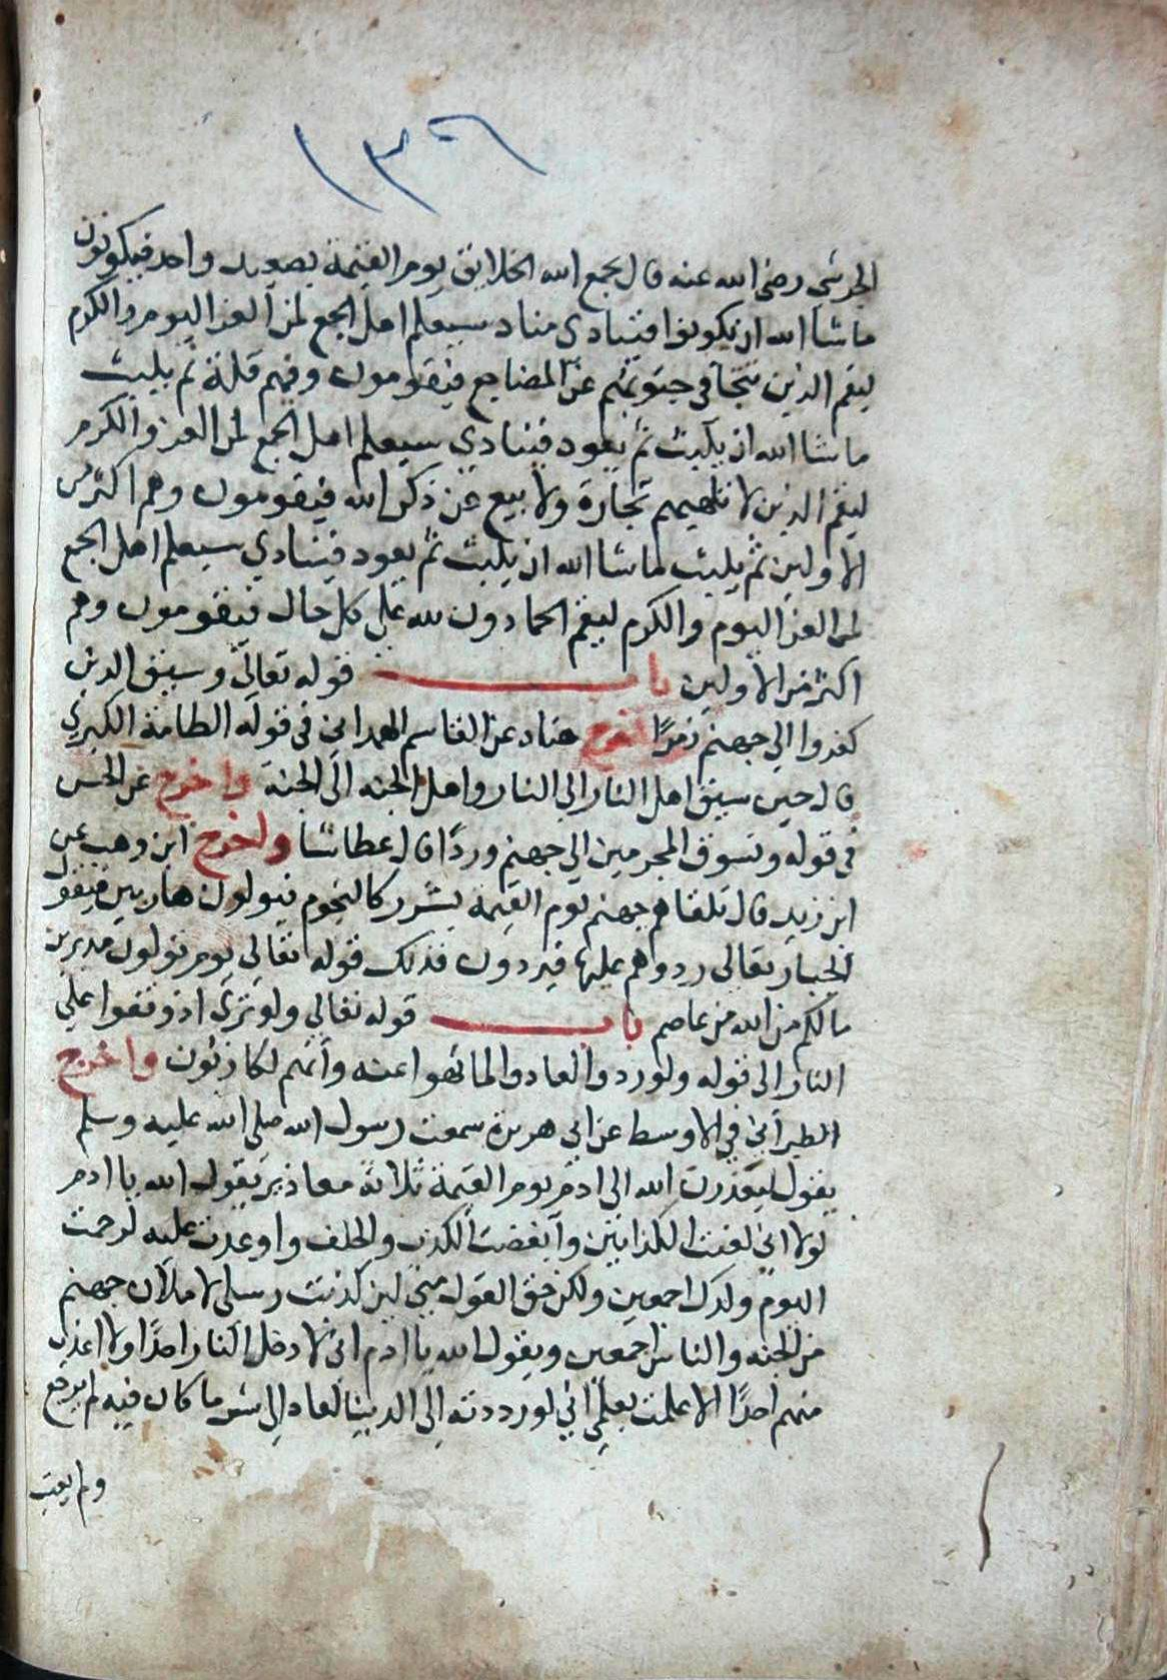 ١٣٦
الجرشي رضي الله عنه قال يجمع الله الخلايق يوم القيمة بصعيد واحد فيكونون
ما شا الله ان يكونوا فينادي مناد سيعلم اهل الجمع لمن العز اليوم والكرم
ليقم الذين تتجافي جنوبهم عن المضاجع فيقومون وفيهم قلة ثم يلبث
ما شا الله ان يلبث ثم يعود فينادي سيعلم اهل الجمع لمن العز والكرم
ليقم الذين لا تلهيهم تجارة ولا بيع عن ذكر الله فيقومون وهم اكثر من
الاولين ثم يلبث ما شا الله ان يلبث ثم يعود فينادي سيعلم اهل الجمع
لمن العز اليوم والكرم ليقم الحمادون لله علي كل حال فيقومون وهم
اكثر من الاولين باب قوله تعالي وسيق الذين
كفروا الي جهنم زمرا اخرج هناد عن القاسم الهمداني في قوله الطامة الكبري
قال حين سيق اهل النار الي النار واهل الجنه الي الجنه واخرج عن الحسن
في قوله ونسوق المجرمين الي جهنم وردًا قال عطاشا واخرج ابن وهب عن
ابن زيد قال تلقاهم جهنم يوم القيمة بشرر كالنجوم فيولون هاربين فيقول
الجبار تعالي ردوهم عليها فيردون فذلك قوله تعالي يوم تولون مدبرين
ما لكم من الله من عاصم باب قوله تعالي ولو تري اذ وقفوا علي
النار الي قوله ولو ردوا لعادوا لما نهوا عنه وانهم لكاذبون واخرج
الطبراني في الاوسط عن ابي هريرة سمعت رسول الله صلي الله عليه وسلم
يقول ليعذرن الله الي ادم يوم القيمة ثلاثة معاذير يقول الله يا ادم
لولا اني لعنت الكذابين وابغضت الكذب والخلف واوعدت عليه لرحمت
اليوم ولدك اجمعين ولكن حق القول مني لين كذبت رسلي لاملان جهنم
من الجنه والناس اجمعين ويقول الله يا ادم اني لا دخل النار احدًا ولا اعذب
منهم احدًا الا علمت بعلمي اني لو رددته الي الدنيا لعاد الي شر ما كان فيه لم يرجع
ولم يعتب